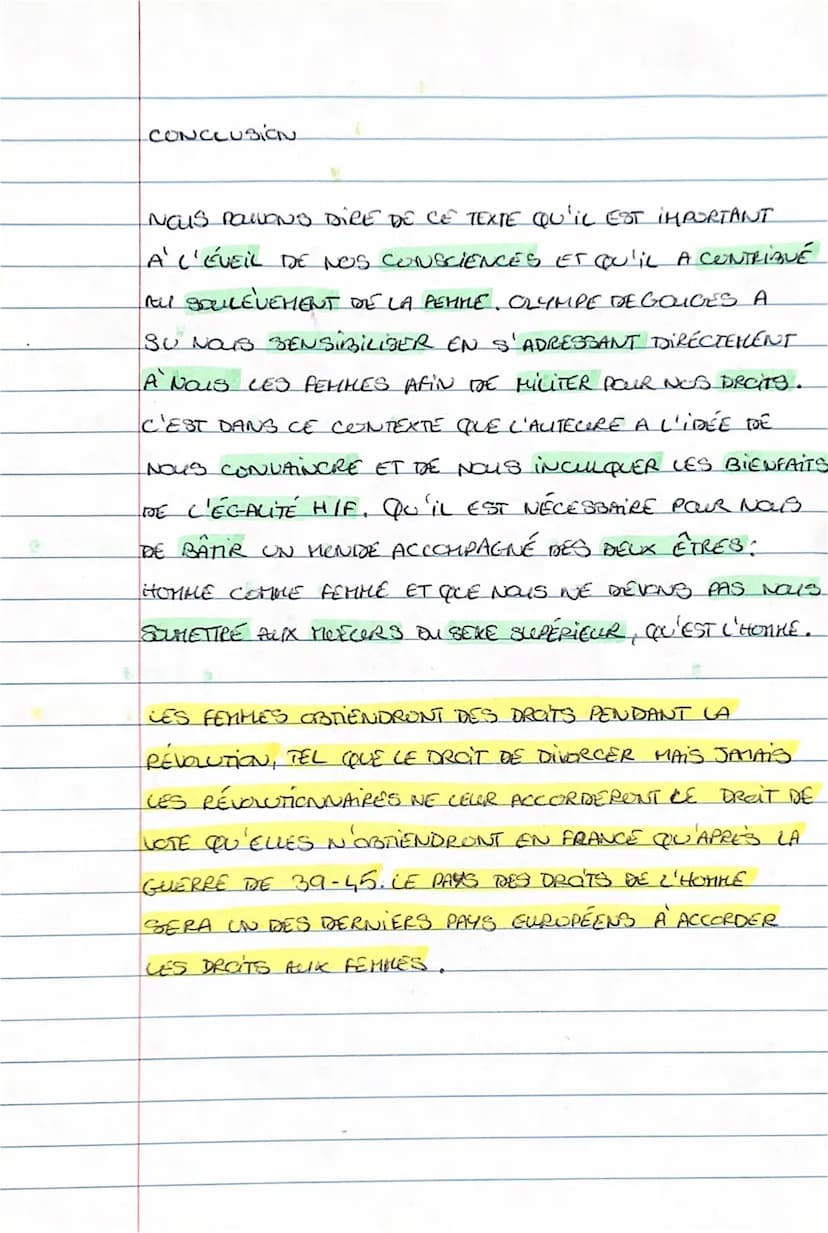 CONCLUSION
NOUS POUVONS DIRE DE CE TEXTE QU'IL EST IMPORTANT
À L'ÉVEIL DE NOS CONSCIENCES ET QU'IL A CONTRIBUÉ
AU SOULÈVEMENT DE LA FEMME. OLYMPE DE GOUGES A
SU NOUS SENSIBILISER EN S'ADRESSANT DIRECTEMENT
À NOUS LES FEMMES AFIN DE MILITER POUR NOS DROITS.
C'EST DANS CE CONTEXTE QUE L'AUTEURE A L'IDÉE DE
NOUS CONVAINCRE ET DE NOUS INCULQUER LES BIENFAITS
DE L'ÉGALITÉ H/F. QU'IL EST NÉCESSAIRE POUR NOUS
DE BÂTIR UN MONDE ACCOMPAGNÉ DES DEUX ÊTRES :
HOMME COMME FEMME ET QUE NOUS NE DEVONS PAS NOUS
SOUMETTRE AUX MOEURS DU SEXE SUPÉRIEUR, QU'EST L'HOMME.
LES FEMMES OBTIENDRONT DES DROITS PENDANT LA
RÉVOLUTION, TEL QUE LE DROIT DE DIVORCER MAIS JAMAIS
LES RÉVOLUTIONNAIRES NE LEUR ACCORDERONT LE DROIT DE
VOTE QU'ELLES N'OBTIENDRONT EN FRANCE QU'APRÈS LA
GUERRE DE 39-45. LE PAYS DES DROITS DE L'HOMME
SERA UN DES DERNIERS PAYS EUROPÉENS À ACCORDER
LES DROITS AUX FEMMES.